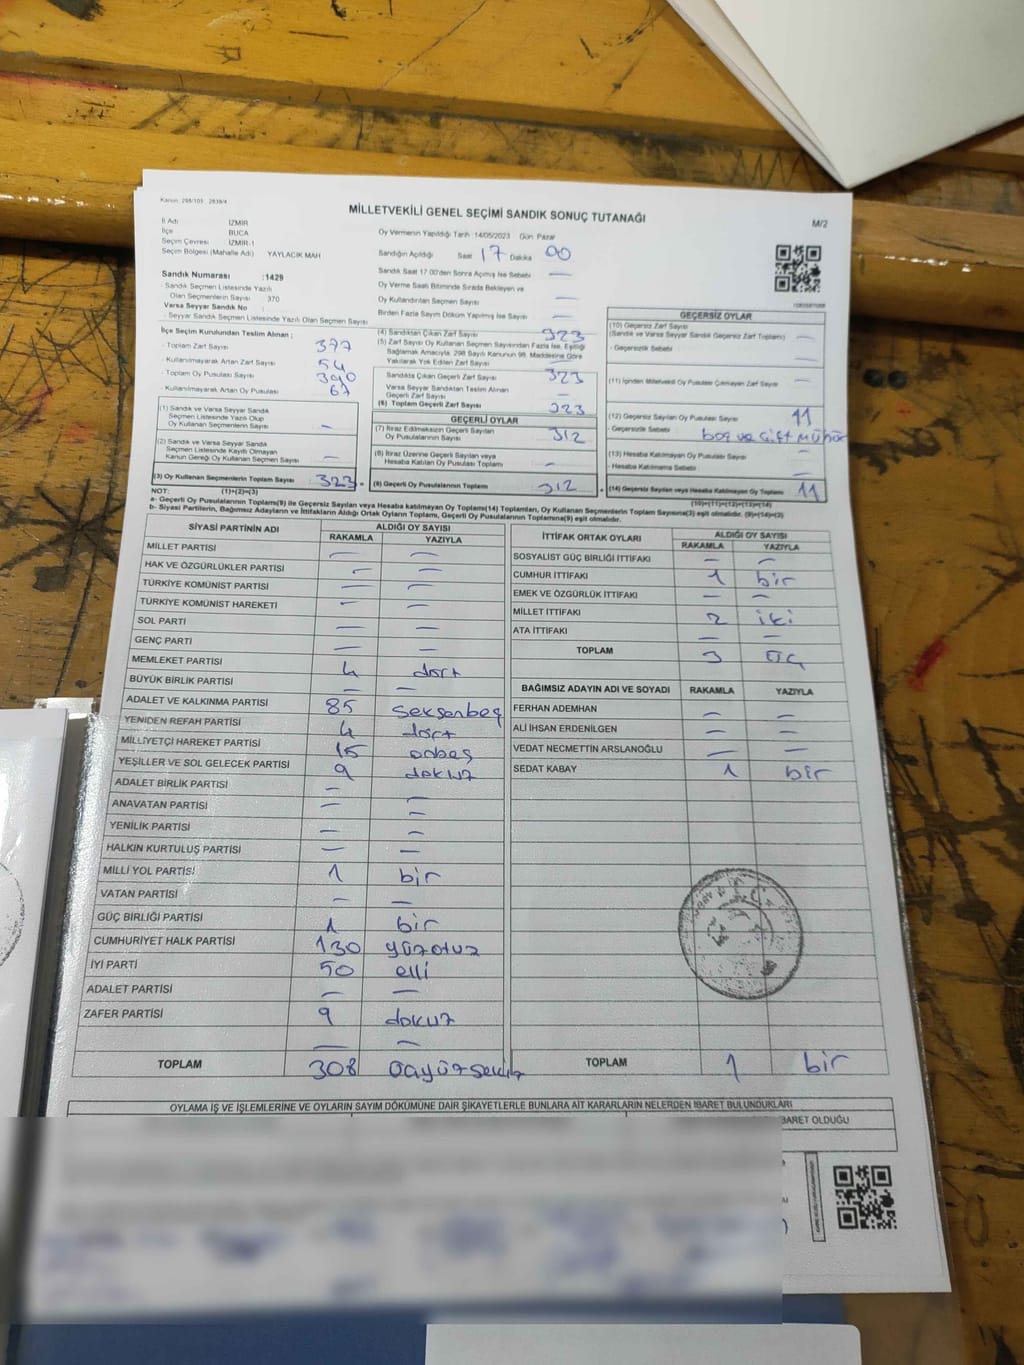 Kanun: 298/105 2839/4
MİLLETVEKİLİ GENEL SEÇİMİ SANDIK SONUÇ TUTANAĞI
M/2
İl Adı İZMİR
İlçe BUCA
Seçim Çevresi İZMİR-1
Seçim Bölgesi (Mahalle Adı) YAYLACIK MAH
Sandık Numarası :1429
Sandık Seçmen Listesinde Yazılı
Olan Seçmenlerin Sayısı 370
Varsa Seyyar Sandık No :
Seyyar Sandık Seçmen Listesinde Yazılı Olan Seçmen Sayısı
Oy Vermenin Yapıldığı Tarih :14/05/2023 Gün: Pazar
Sandığın Açıldığı Saat 17 Dakika 00
Sandık Saat 17.00'den Sonra Açılmış İse Sebebi —
Oy Verme Saati Bitiminde Sırada Bekleyen ve
Oy Kullandırılan Seçmen Sayısı —
Birden Fazla Sayım Döküm Yapılmış İse Sayısı —
İlçe Seçim Kurulundan Teslim Alınan :
Toplam Zarf Sayısı 377
Kullanılmayarak Artan Zarf Sayısı 54
Toplam Oy Pusulası Sayısı 390
Kullanılmayarak Artan Oy Pusulası 67
(1) Sandık ve Varsa Seyyar Sandık
Seçmen Listesinde Yazılı Olup
Oy Kullanan Seçmen Sayısı —
(2) Sandık ve Varsa Seyyar Sandık
Seçmen Listesinde Kayıtlı Olmayan
Kanun Gereği Oy Kullanan Seçmen Sayısı —
(3) Oy Kullanan Seçmenlerin Toplam Sayısı 323
(1)+(2)=(3)
(4) Sandıktan Çıkan Zarf Sayısı 323
(5) Zarf Sayısı Oy Kullanan Seçmen Sayısından Fazla İse, Eşitliği
Sağlamak Amacıyla, 298 Sayılı Kanunun 98. Maddesine Göre
Yakılarak Yok Edilen Zarf Sayısı —
Sandıkta Çıkan Geçerli Zarf Sayısı 323
Varsa Seyyar Sandıktan Teslim Alınan
Geçerli Zarf Sayısı —
(6) Toplam Geçerli Zarf Sayısı 323
GEÇERLİ OYLAR
(7) İtiraz Edilmeksizin Geçerli Sayılan
Oy Pusulalarının Sayısı 312
(8) İtiraz Üzerine Geçerli Sayılan veya
Hesaba Katılan Oy Pusulası Toplamı —
(9) Geçerli Oy Pusulalarının Toplamı 312
GEÇERSİZ OYLAR
(10) Geçersiz Zarf Sayısı
(Sandık ve Varsa Seyyar Sandık Geçersiz Zarf Toplamı) —
Geçersizlik Sebebi —
(11) İçinden Milletvekili Oy Pusulası Çıkmayan Zarf Sayısı —
(12) Geçersiz Sayılan Oy Pusulası Sayısı 11
Geçersizlik Sebebi boş ve Çift Mühür
(13) Hesaba Katılmayan Oy Pusulası Sayısı —
Hesaba Katılmama Sebebi —
(14) Geçersiz Sayılan veya Hesaba Katılmayan Oy Toplamı 11
(10)+(11)+(12)+(13)=(14)
NOT:
a- Geçerli Oy Pusulalarının Toplamı(9) ile Geçersiz Sayılan veya Hesaba Katılmayan Oy Toplamı(14) Toplamları, Oy Kullanan Seçmenlerin Toplam Sayısına(3) eşit olmalıdır. (9)+(14)=(3)
b- Siyasi Partilerin, Bağımsız Adayların ve İttifakların Aldığı Ortak Oyların Toplamı, Geçerli Oy Pusulalarının Toplamına(9) eşit olmalıdır.
SİYASİ PARTİNİN ADI ALDIĞI OY SAYISI
RAKAMLA YAZIYLA
MİLLET PARTİSİ — —
HAK VE ÖZGÜRLÜKLER PARTİSİ — —
TÜRKİYE KOMÜNİST PARTİSİ — —
TÜRKİYE KOMÜNİST HAREKETİ — —
SOL PARTİ — —
GENÇ PARTİ — —
MEMLEKET PARTİSİ 4 dört
BÜYÜK BİRLİK PARTİSİ — —
ADALET VE KALKINMA PARTİSİ 85 seksenbeş
YENİDEN REFAH PARTİSİ 4 dört
MİLLİYETÇİ HAREKET PARTİSİ 15 onbeş
YEŞİLLER VE SOL GELECEK PARTİSİ 9 dokuz
ADALET BİRLİK PARTİSİ —
ANAVATAN PARTİSİ — —
YENİLİK PARTİSİ — —
HALKIN KURTULUŞ PARTİSİ — —
MİLLİ YOL PARTİSİ 1 bir
VATAN PARTİSİ — —
GÜÇ BİRLİĞİ PARTİSİ 1 bir
CUMHURİYET HALK PARTİSİ 130 yüzotuz
İYİ PARTİ 50 elli
ADALET PARTİSİ — —
ZAFER PARTİSİ 9 dokuz
— —
TOPLAM 308 üçyüzsekiz
İTTİFAK ORTAK OYLARI ALDIĞI OY SAYISI
RAKAMLA YAZIYLA
SOSYALİST GÜÇ BİRLİĞİ İTTİFAKI — —
CUMHUR İTTİFAKI 1 bir
EMEK VE ÖZGÜRLÜK İTTİFAKI — —
MİLLET İTTİFAKI 2 iki
ATA İTTİFAKI — —
TOPLAM 3 üç
BAĞIMSIZ ADAYIN ADI VE SOYADI RAKAMLA YAZIYLA
FERHAN ADEMHAN — —
ALİ İHSAN ERDENİLGEN — —
VEDAT NECMETTİN ARSLANOĞLU — —
SEDAT KABAY 1 bir
TOPLAM 1 bir
OYLAMA İŞ VE İŞLEMLERİNE VE OYLARIN SAYIM DÖKÜMÜNE DAİR ŞİKAYETLERLE BUNLARA AİT KARARLARIN NELERDEN İBARET BULUNDUKLARI
BARET OLDUĞU